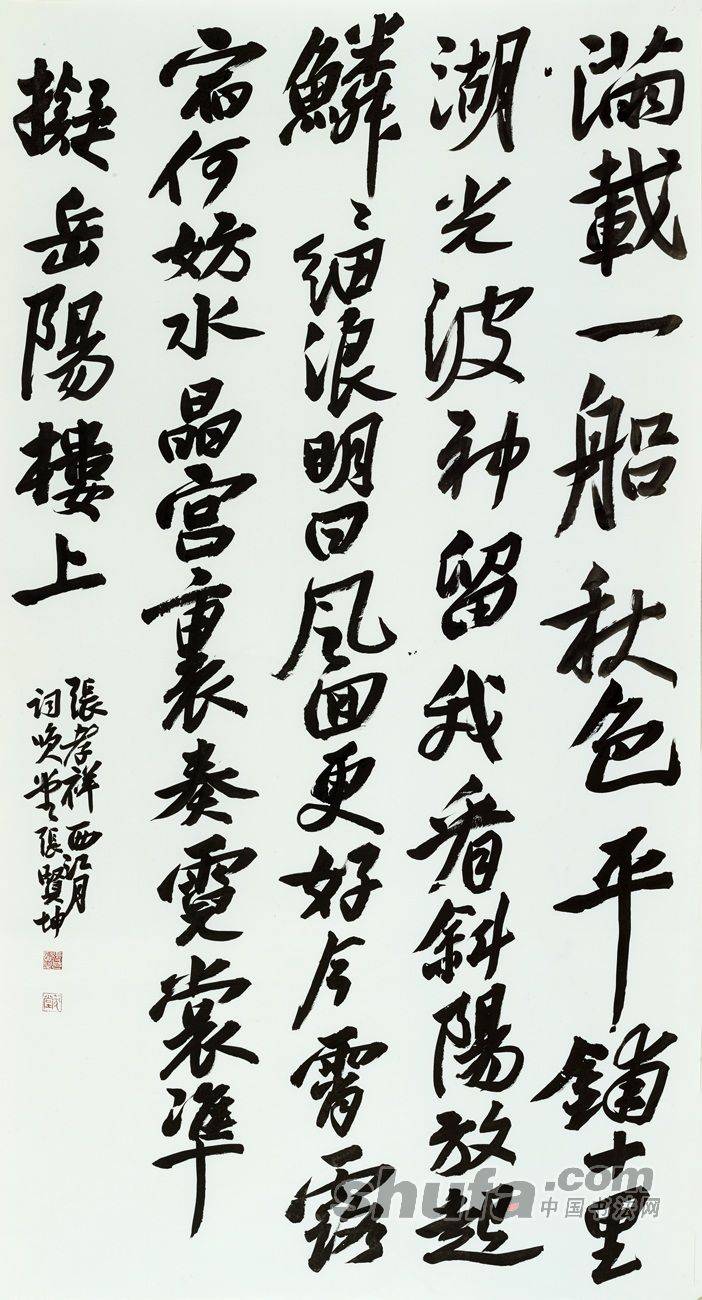 滿載一船秋色平鋪十里
湖光波神留我看斜陽放起
鱗〻細浪明日風回更好今宵露
宿何妨水晶宮裏奏霓裳準
擬岳陽樓上
張孝祥西江月
詞堂張賢坤
shufa.com
中国书法网